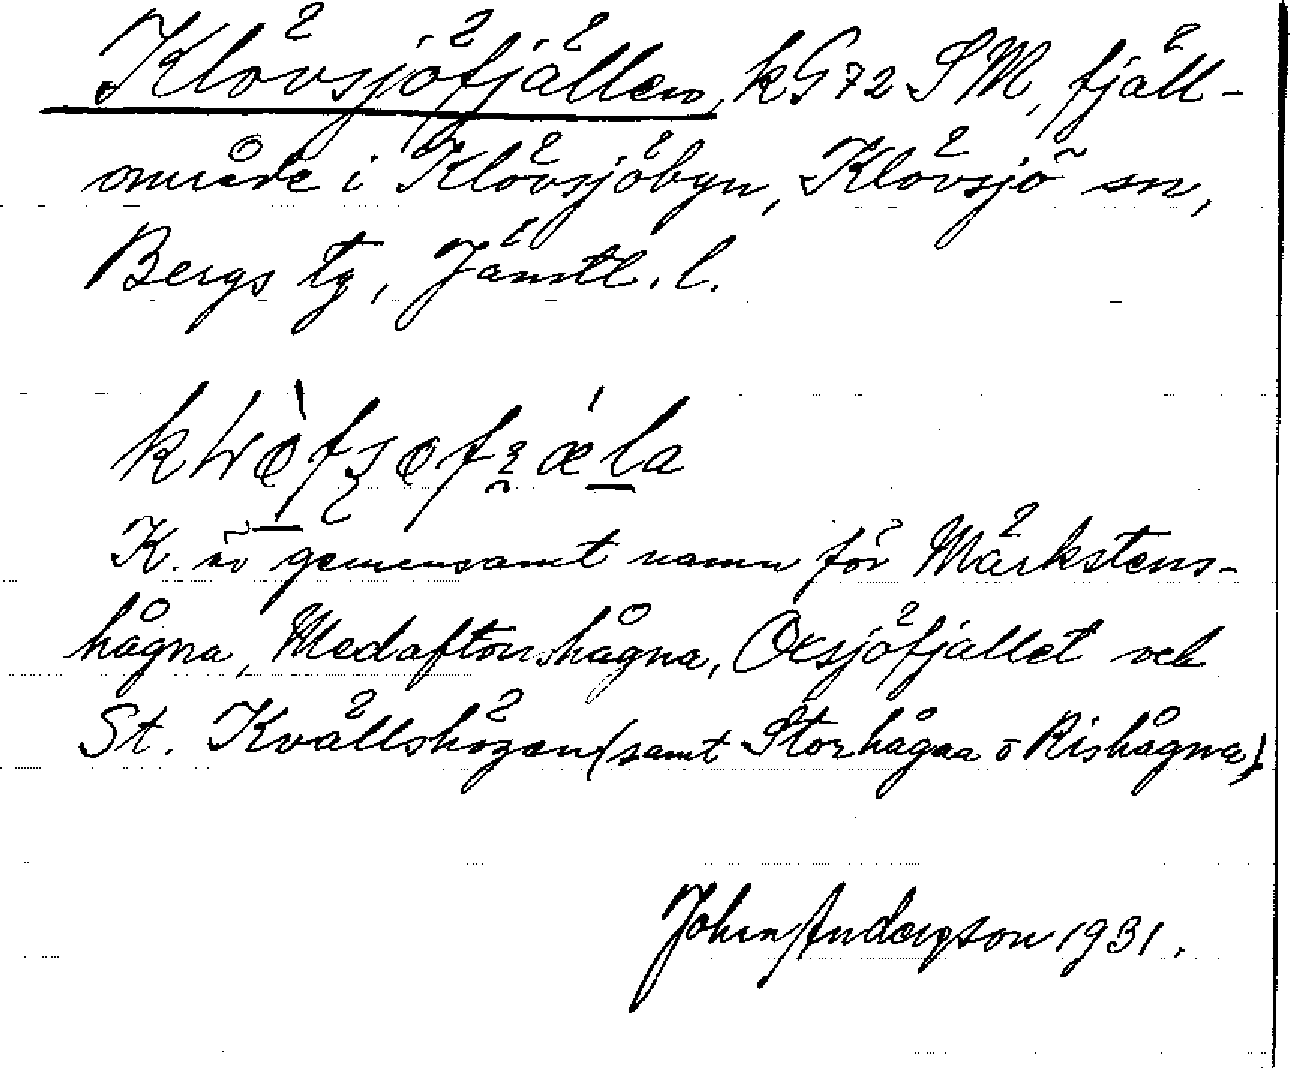 Klövsjöfjällen, kG72 SM, fjäll-
område i Klövsjöbyn, Klövsjö sn,
Bergs tg, Jämtl. l.
K. är gemensamt namn för Märkstens-
hågna, Medaftonshågna, Oxsjöfjället och
St. Kvällshögen (samt Storhågna o Rishågna).
John Andersson 1931.